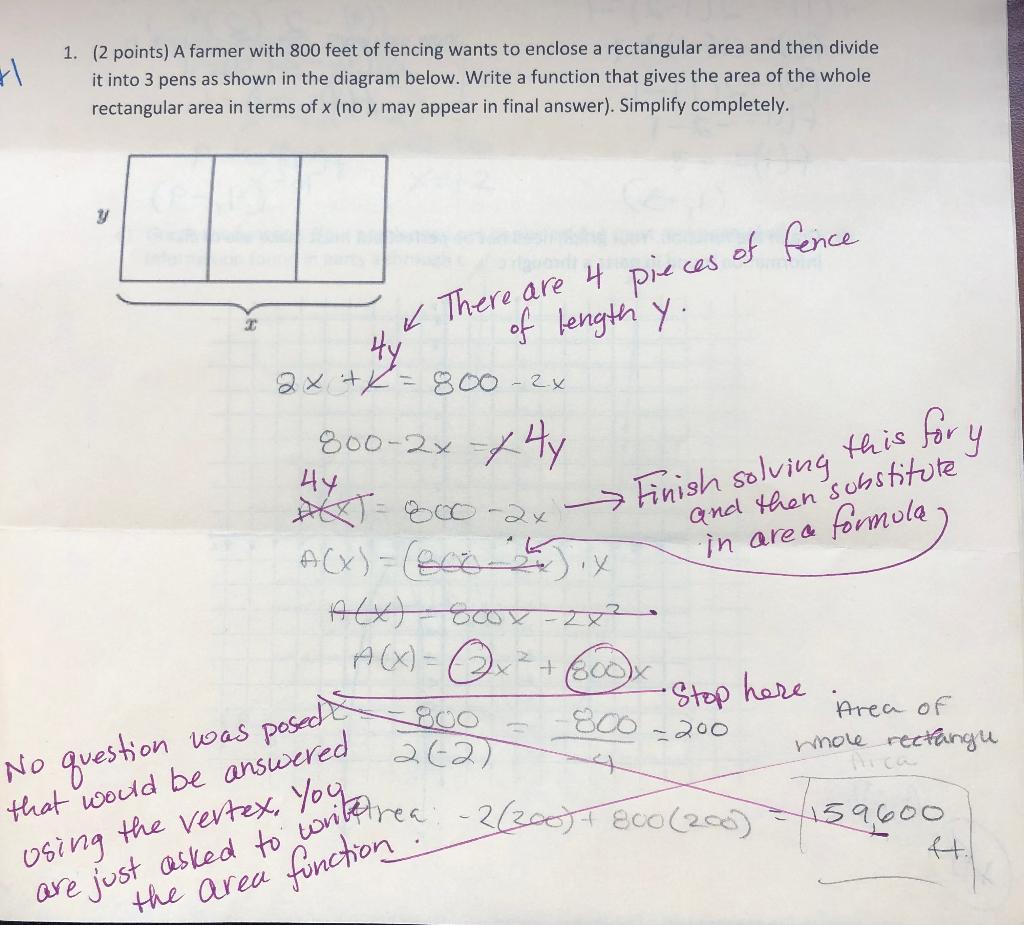 +1
1. (2 points) A farmer with 800 feet of fencing wants to enclose a rectangular area and then divide
it into 3 pens as shown in the diagram below. Write a function that gives the area of the whole
rectangular area in terms of x (no y may appear in final answer). Simplify completely.
y
x
There are 4 pieces of fence
of length y.
4y
2x + = 800 - 2x
800-2x = 4y
4y
A(x) = 800 - 2x
Finish solving this for y
and then substitute
in area formula
A(x) = (800 - 2x) · x
A(x) = 800x - 2x²
A(x) = -2x² + 800x
Stop here
x = -800 / 2(-2) = -800 / -4 = 200
Area of
whole rectangle
Area: -2(200) + 800(200) = 159,600
ft.
No question was posed
that would be answered
using the vertex. You
are just asked to write
the area function.